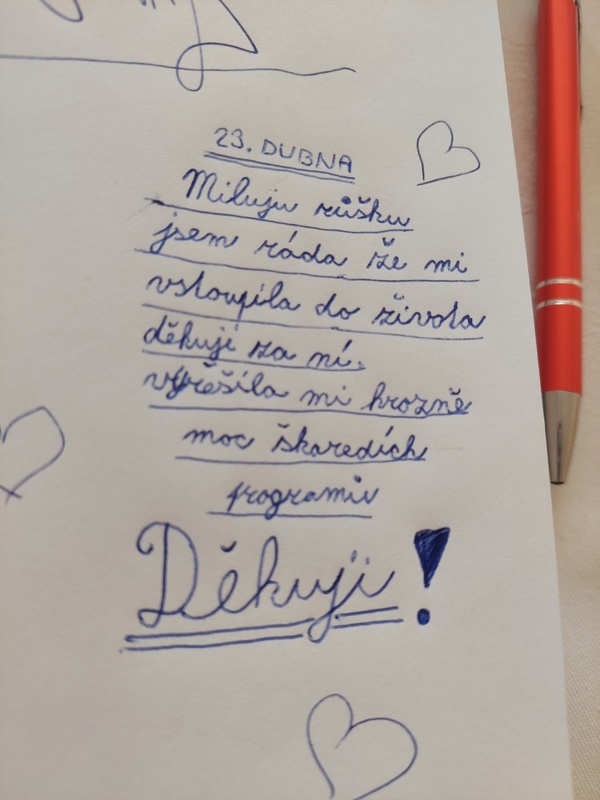 23. DUBNA
Miluju růšku
jsem ráda že mi
vstoupila do života
děkuji za ní.
vyřešila mi hrozně
moc škaredích
programiv
Děkuji!